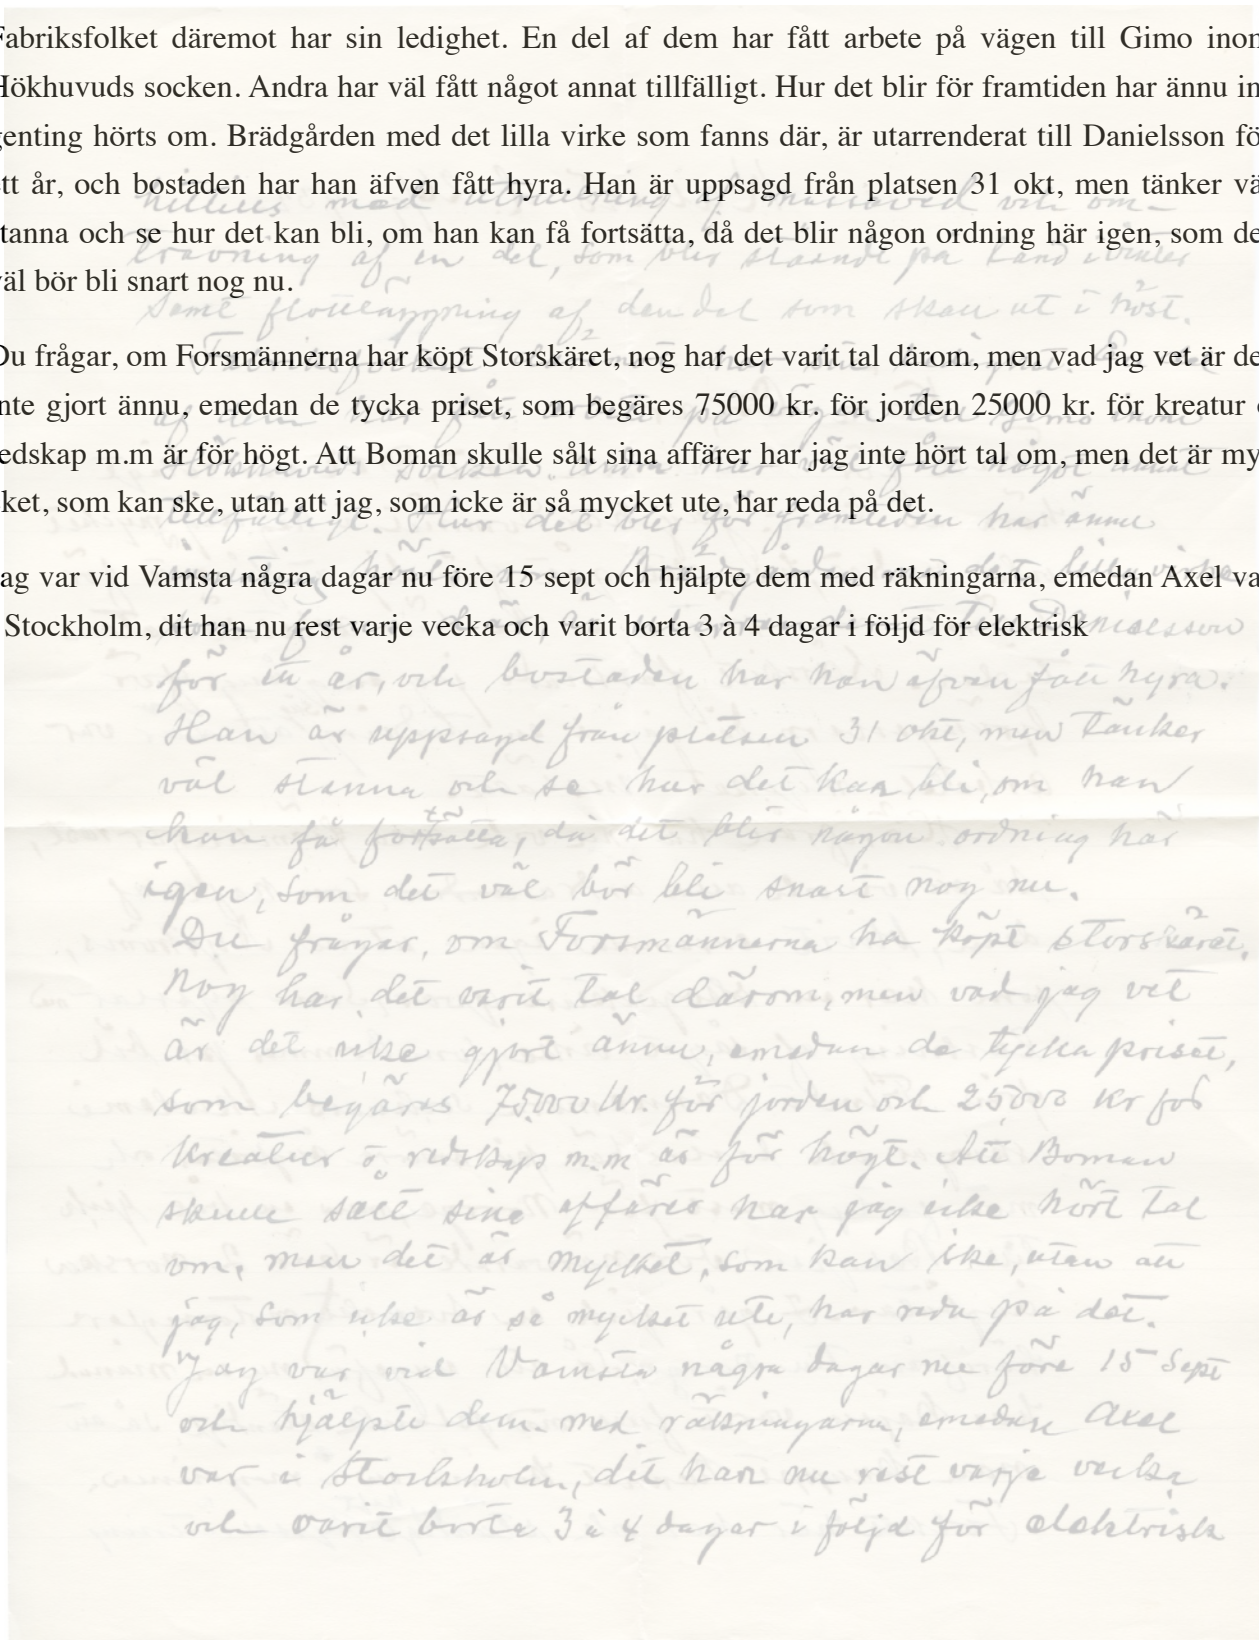 Fabriksfolket däremot har sin ledighet. En del af dem har fått arbete på vägen till Gimo inom
Hökhuvuds socken. Andra har väl fått något annat tillfälligt. Hur det blir för framtiden har ännu in
genting hörts om. Brädgården med det lilla virke som fanns där, är utarrenderat till Danielsson fö
tt år, och bostaden har han äfven fått hyra. Han är uppsagd från platsen 31 okt, men tänker vä
tanna och se hur det kan bli, om han kan få fortsätta, då det blir någon ordning här igen, som de
väl bör bli snart nog nu.
Du frågar, om Forsmännerna har köpt Storskäret, nog har det varit tal därom, men vad jag vet är de
inte gjort ännu, emedan de tycka priset, som begäres 75000 kr. för jorden 25000 kr. för kreatur
redskap m.m är för högt. Att Boman skulle sålt sina affärer har jag inte hört tal om, men det är my
ket, som kan ske, utan att jag, som icke är så mycket ute, har reda på det.
ag var vid Vamsta några dagar nu före 15 sept och hjälpte dem med räkningarna, emedan Axel va
Stockholm, dit han nu rest varje vecka och varit borta 3 à 4 dagar i följd för elektrisk
hittills med af massaved och om-
travning af en del, som blir stående på land i vinter
samt flottläggning af den del som skall ut i höst.
Fabriksfolket däremot har sin ledighet. En del
af dem har fått arbete på vägen till Gimo inom
Hökhuvuds socken. Andra har väl fått något annat
tillfälligt. Hur det blir för framtiden har ännu
ingenting hörts om. Brädgården med det lilla virke
som fanns där, är utarrenderat till Danielsson
för ett år, och bostaden har han äfven fått hyra.
Han är uppsagd från platsen 31 okt, men tänker
väl stanna och se hur det kan bli, om han
kan få fortsätta, då det blir någon ordning här
igen, som det väl bör bli snart nog nu.
Du frågar, om Forsmännerna ha köpt Storskäret,
nog har det varit tal därom, men vad jag vet
är det icke gjort ännu, emedan de tycka priset,
som begäres 75000 kr. för jorden och 25000 kr för
kreatur o. redskap m.m är för högt. Att Boman
skulle sålt sina affärer har jag icke hört tal
om, men det är mycket, som kan ske, utan att
jag, som icke är så mycket ute, har reda på det.
Jag var vid Vamsta några dagar nu före 15 Sept
och hjälpte dem med räkningarna, emedan Axel
var i Stockholm, dit han nu rest varje vecka
och varit borta 3 à 4 dagar i följd för elektrisk